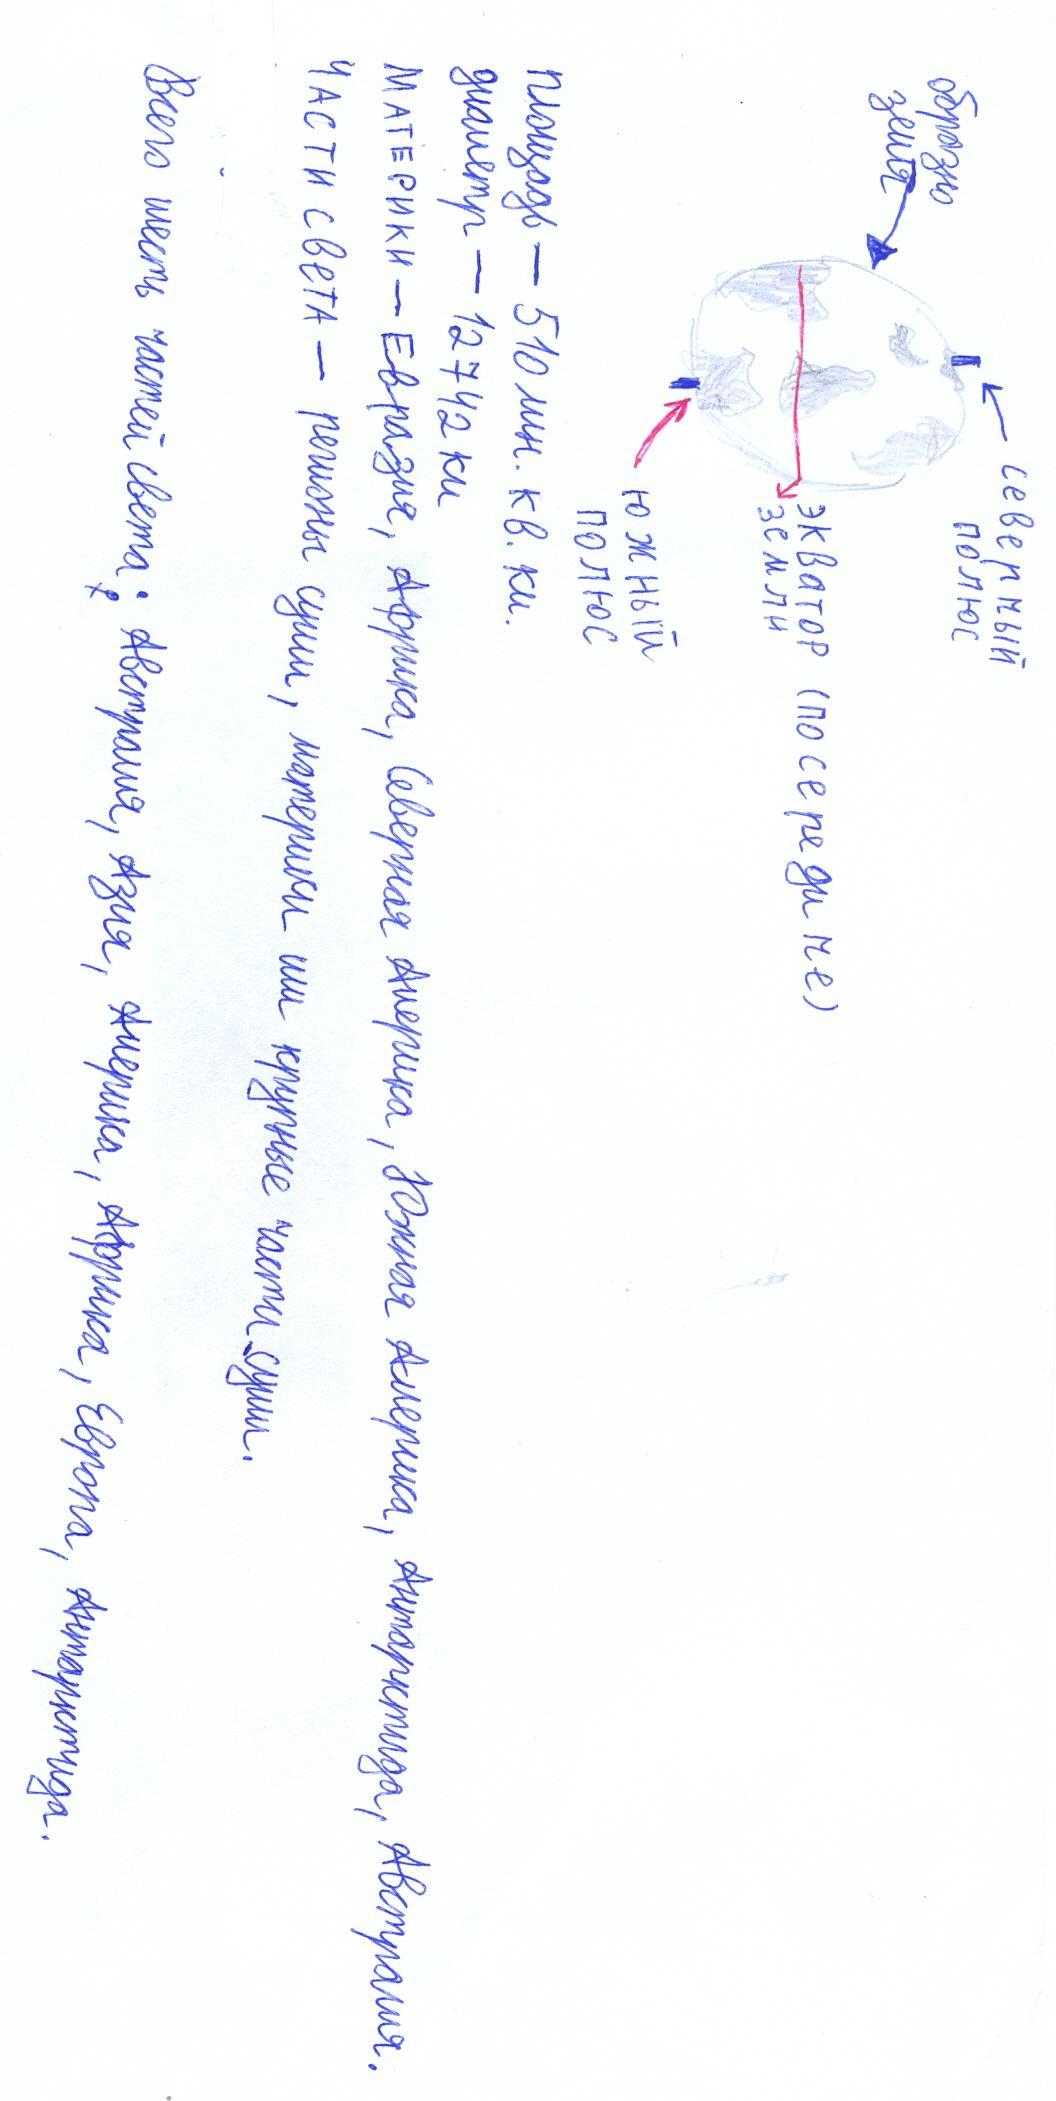 северный
полюс
образно
земля
экватор (посередине)
земли
южный
полюс
площадь — 510 млн. кв. км.
диаметр — 12742 км
МАТЕРИКИ — Евразия, Африка, Северная Америка, Южная Америка, Антарктида, Австралия.
ЧАСТИ СВЕТА — регионы суши, материки или крупные части суши.
Всего шесть частей света: Австралия, Азия, Америка, Африка, Европа, Антарктида.